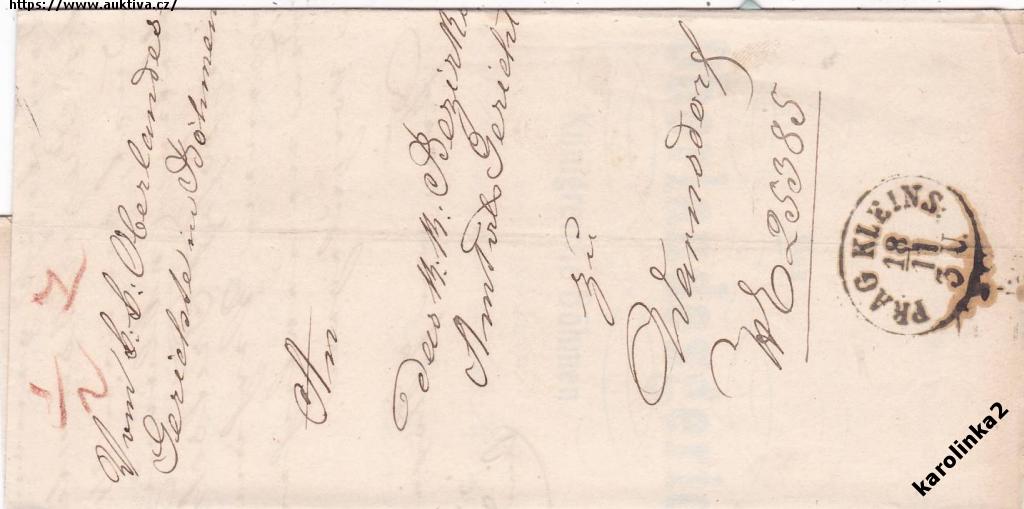 https://www.auktiva.cz/
Vom k: k: Oberlandes
Gerichte in Böhmen
An
das k. k: Bezirks
Amt als Gericht
zu
Warnsdorf
25385
PRAG KLEINS:
18
11
3 U.
karolinka2